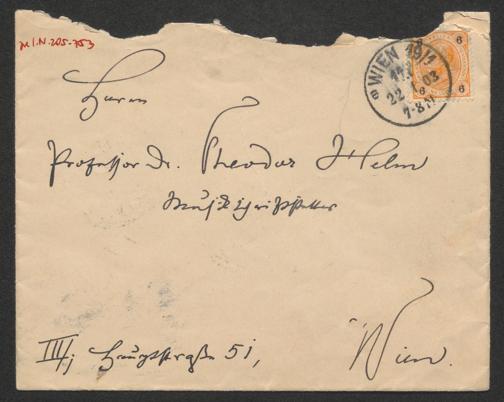 M I.N. 205.753
WIEN 19/1
22. 1. 03
7-8 N
6 6
6 6
Herrn
Professor Dr. Theodor Helm
Musikschriftsteller
III/; Hauptstraße 51,
Wien.